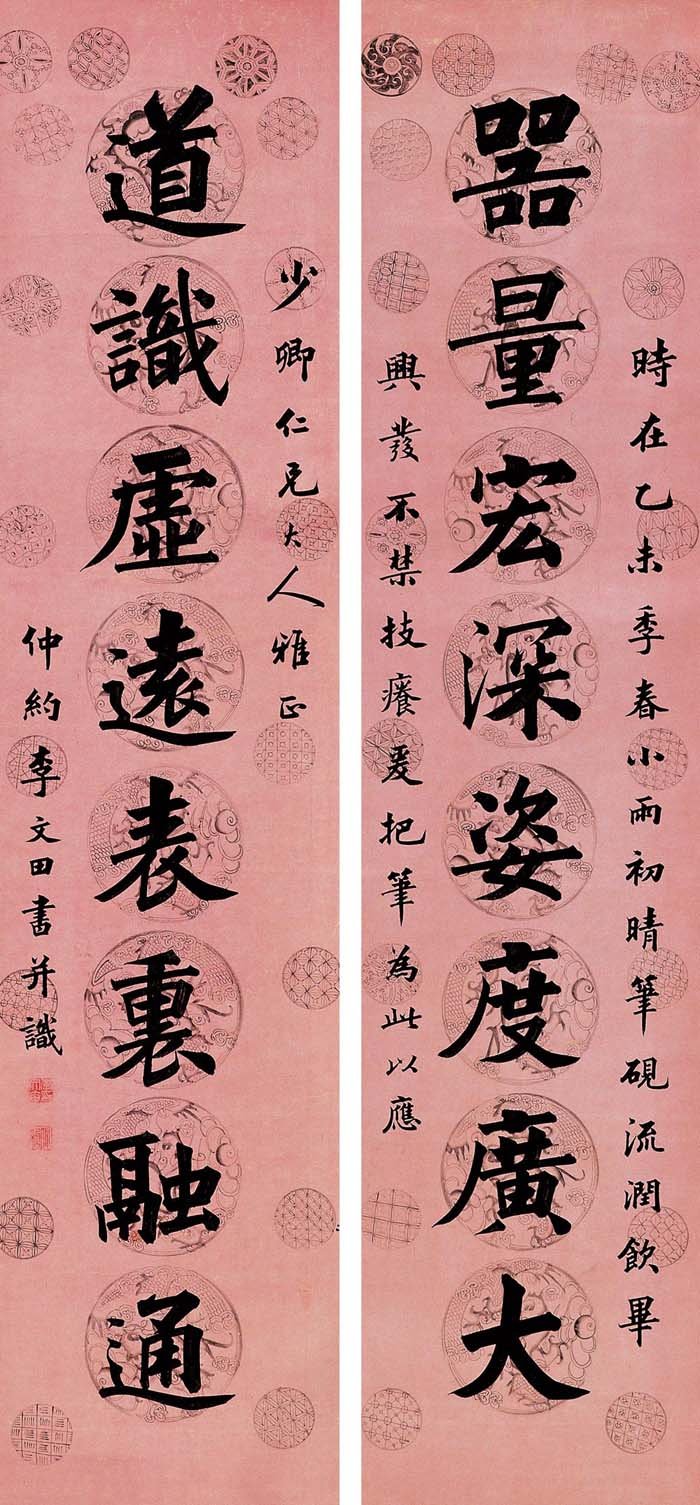 時在乙未季春小雨初晴筆硯流潤飲畢
器量宏深姿度廣大
興發不禁技癢爰把筆為此以應
少卿仁兄大人雅正
道識虛遠表裏融通
仲約李文田書并識